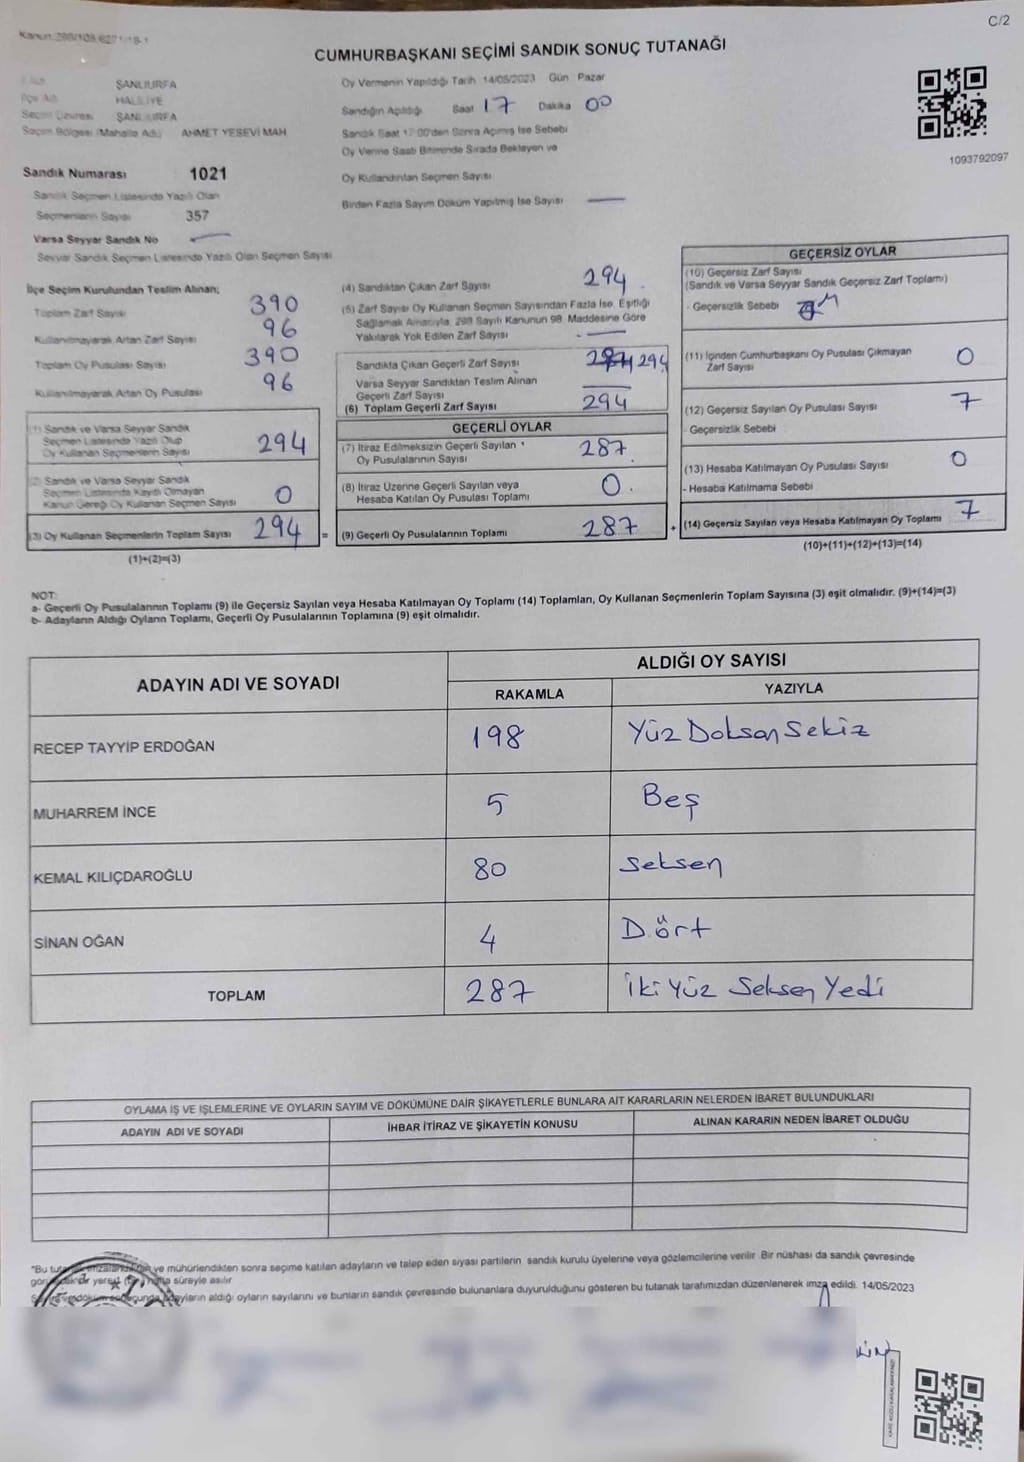 C/2
Kanun:298/108,6271/18-1
CUMHURBAŞKANI SEÇİMİ SANDIK SONUÇ TUTANAĞI
ŞANLIURFA
İlçe Adı HALİLİYE
Seçim Çevresi ŞANLIURFA
Seçim Bölgesi (Mahalle Adı) AHMET YESEVİ MAH
Sandık Numarası 1021
Sandık Seçmen Listesinde Yazılı Olan
Seçmenlerin Sayısı 357
Varsa Seyyar Sandık No
Seyyar Sandık Seçmen Listesinde Yazılı Olan Seçmen Sayısı
Oy Vermenin Yapıldığı Tarih 14/05/2023 Gün Pazar
Sandığın Açıldığı Saat 17 Dakika 00
Sandık Saat 17:00'den Sonra Açılmış İse Sebebi
Oy Verme Saati Bitiminde Sırada Bekleyen ve
Oy Kullandırılan Seçmen Sayısı
Birden Fazla Sayım Döküm Yapılmış İse Sayısı
1093792097
İlçe Seçim Kurulundan Teslim Alınan;
Toplam Zarf Sayısı 390
Kullanılmayarak Artan Zarf Sayısı 96
Toplam Oy Pusulası Sayısı 390
Kullanılmayarak Artan Oy Pusulası 96
(1) Sandık ve Varsa Seyyar Sandık
Seçmen Listesinde Yazılı Olup
Oy Kullanan Seçmenlerin Sayısı 294
(2) Sandık ve Varsa Seyyar Sandık
Seçmen Listesinde Kayıtlı Olmayan
Kanun Gereği Oy Kullanan Seçmen Sayısı 0
(3) Oy Kullanan Seçmenlerin Toplam Sayısı 294 =
(1)+(2)=(3)
(4) Sandıktan Çıkan Zarf Sayısı 294
(5) Zarf Sayısı Oy Kullanan Seçmen Sayısından Fazla İse, Eşitliği
Sağlamak Amacıyla, 298 Sayılı Kanunun 98. Maddesine Göre
Yakılarak Yok Edilen Zarf Sayısı
Sandıkta Çıkan Geçerli Zarf Sayısı 287 294
Varsa Seyyar Sandıktan Teslim Alınan
Geçerli Zarf Sayısı
(6) Toplam Geçerli Zarf Sayısı 294
GEÇERLİ OYLAR
(7) İtiraz Edilmeksizin Geçerli Sayılan
Oy Pusulalarının Sayısı 287
(8) İtiraz Üzerine Geçerli Sayılan veya
Hesaba Katılan Oy Pusulası Toplamı 0
(9) Geçerli Oy Pusulalarının Toplamı 287 +
GEÇERSİZ OYLAR
(10) Geçersiz Zarf Sayısı
(Sandık ve Varsa Seyyar Sandık Geçersiz Zarf Toplamı)
- Geçersizlik Sebebi
(11) İçinden Cumhurbaşkanı Oy Pusulası Çıkmayan
Zarf Sayısı 0
(12) Geçersiz Sayılan Oy Pusulası Sayısı 7
- Geçersizlik Sebebi
(13) Hesaba Katılmayan Oy Pusulası Sayısı 0
- Hesaba Katılmama Sebebi
(14) Geçersiz Sayılan veya Hesaba Katılmayan Oy Toplamı 7
(10)+(11)+(12)+(13)=(14)
NOT:
a- Geçerli Oy Pusulalarının Toplamı (9) ile Geçersiz Sayılan veya Hesaba Katılmayan Oy Toplamı (14) Toplamları, Oy Kullanan Seçmenlerin Toplam Sayısına (3) eşit olmalıdır. (9)+(14)=(3)
b- Adayların Aldığı Oyların Toplamı, Geçerli Oy Pusulalarının Toplamına (9) eşit olmalıdır.
ADAYIN ADI VE SOYADI
ALDIĞI OY SAYISI
RAKAMLA YAZIYLA
RECEP TAYYİP ERDOĞAN 198 Yüz Doksan Sekiz
MUHARREM İNCE 5 Beş
KEMAL KILIÇDAROĞLU 80 Seksen
SİNAN OĞAN 4 Dört
TOPLAM 287 İki Yüz Seksen Yedi
OYLAMA İŞ VE İŞLEMLERİNE VE OYLARIN SAYIM VE DÖKÜMÜNE DAİR ŞİKAYETLERLE BUNLARA AİT KARARLARIN NELERDEN İBARET BULUNDUKLARI
ADAYIN ADI VE SOYADI İHBAR İTİRAZ VE ŞİKAYETİN KONUSU ALINAN KARARIN NEDEN İBARET OLDUĞU
"Bu tutanak imzalandıktan ve mühürlendikten sonra seçime katılan adayların ve talep eden siyasi partilerin sandık kurulu üyelerine veya gözlemcilerine verilir. Bir nüshası da sandık çevresinde
yere hafta süreyle asılır
adayların aldığı oyların sayılarını ve bunların sandık çevresinde bulunanlara duyurulduğunu gösteren bu tutanak tarafımızdan düzenlenerek imza edildi. 14/05/2023